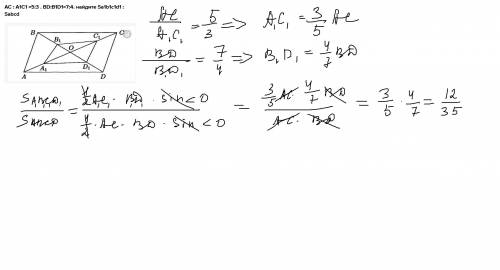 AC : A1C1 =5:3 ; BD:B1D1=7:4. найдите Sa1b1c1d1 :
Sabcd
B C
B₁ C₁
O
A₁ D₁
A D
AC/A₁C₁ = 5/3 => A₁C₁ = 3/5 AC
BD/B₁D₁ = 7/4 => B₁D₁ = 4/7 BD
= (1/2 A₁C₁ · B₁D₁ · Sin<O)/(1/2 · AC · BD · Sin<O) = (3/5 AC · 4/7 BD)/(AC · BD) = 3/5 · 4/7 = 12/35